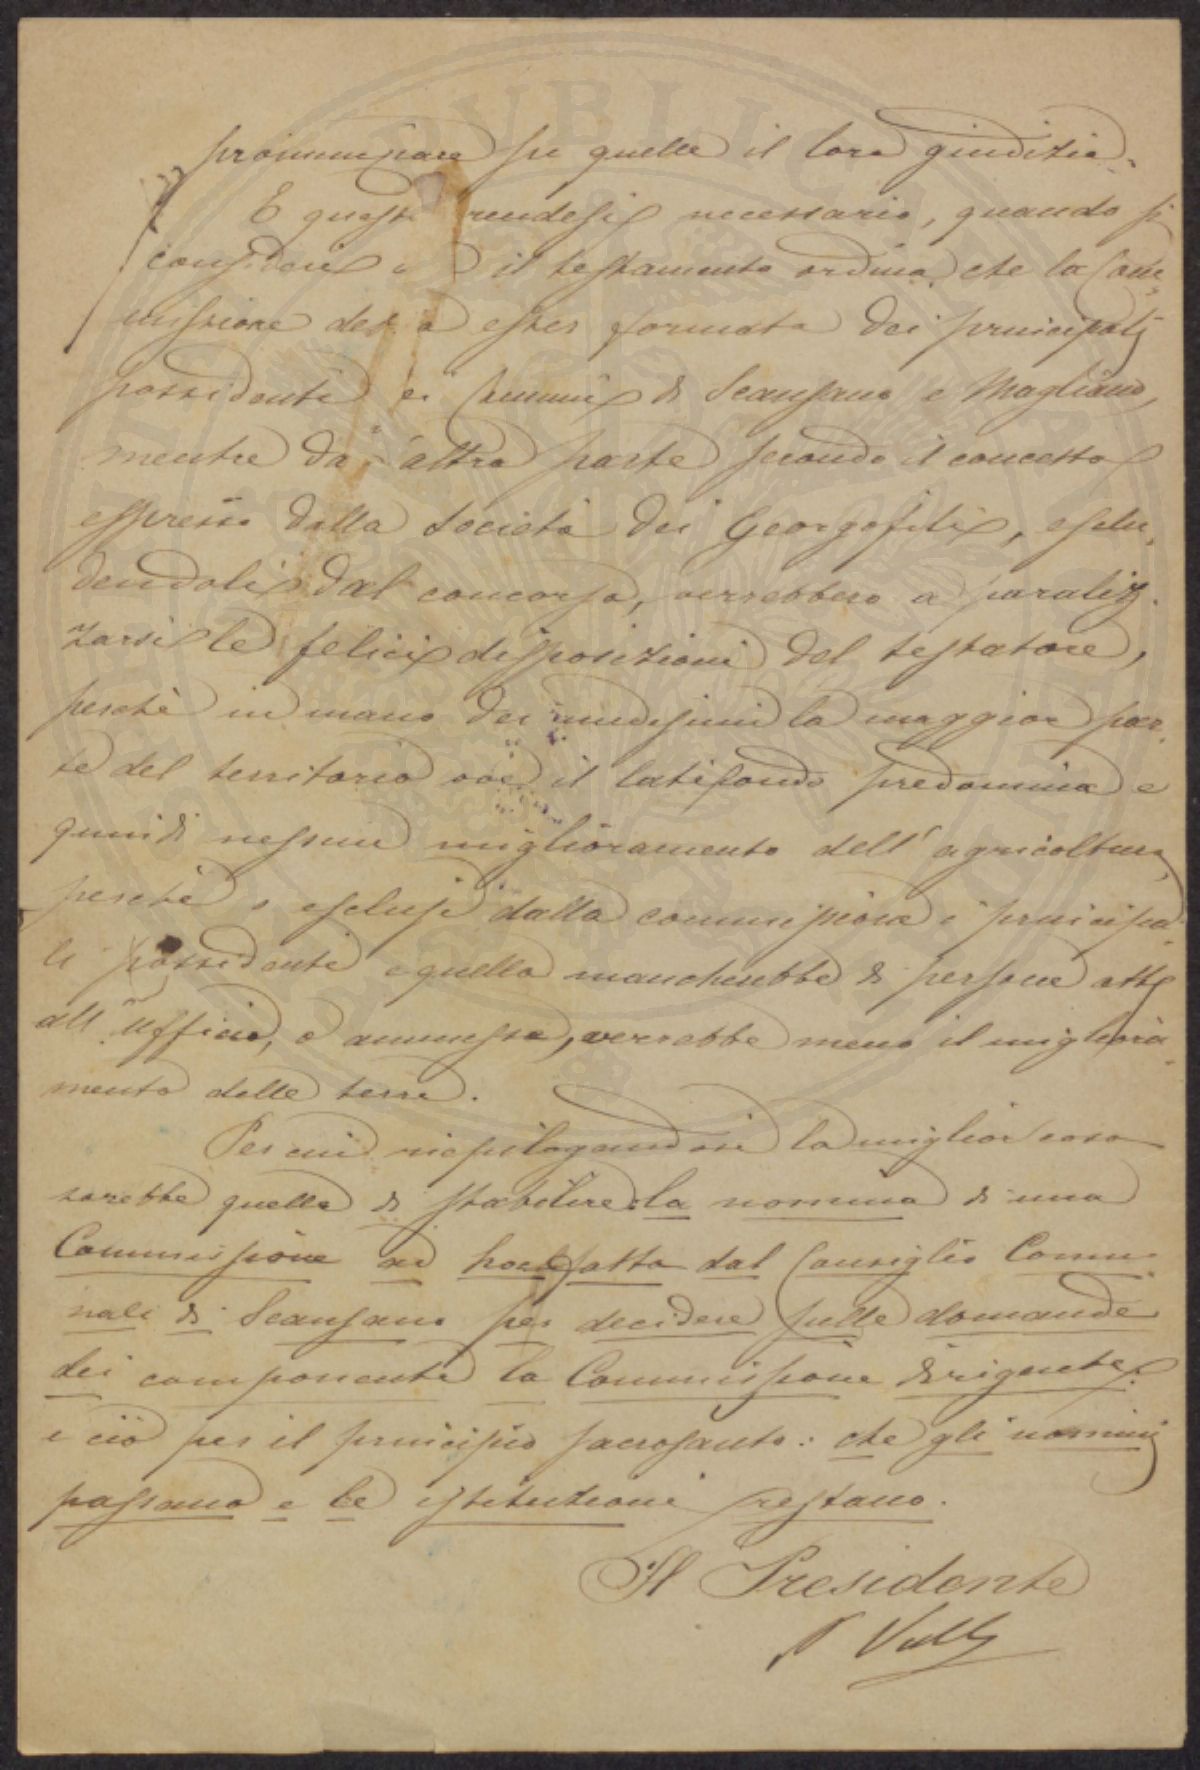 pronunciare su quelle il loro giudizio.
E questo rendesi necessario, quando si
consideri il testamento ordina, che la Com-
missione deve esser formata dei principali
possidenti ei Comuni di Scansano e Magliano,
mentre da altra parte secondo il concetto
espresso dalla Società dei Georgofili, esclu-
dendoli dal concorso, verrebbero a paraliz-
zarsi le felici disposizioni del testatore,
perchè in mano dei medesimi la maggior par-
te del territorio ove il latifondo predomina e
quindi nessun miglioramento dell' agricoltura,
perchè o esclusi dalla commissione i principa-
li possidenti e quella mancherebbe di persone atte
all' Ufficio, o ammessi, verrebbe meno il migliora-
mento delle terre.
Per cui riepilogandosi la miglior cosa
sarebbe quella di stabilire la nomina di una
Commissione ad hoc fatta dal Consiglio Comu-
nale di Scansano per decidere sulle domande
dei componenti la Commissione dirigente,
e ciò per il principio sacrosanto: che gli uomini
passano e le istituzioni restano.
Il Presidente